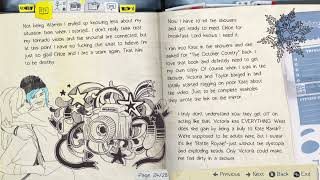 Not being Warren I ended up knowing less about my
situation than when I started. I don't really think that
my tornado vision and the snowfall are connected, but
at this point I have no fucking clue what to believe. I'm
just so glad Chloe and I are a team again. That has
to be destiny.
Page 24/28
Now I have to hit the showers
and get ready to meet Chloe for
breakfast. Lord knows I need it.
I ran into Kate in the showers and she asked
for "The October Country" back. I
love that book and definitely need to get
my own copy. Of course when I was in the
shower, Victoria and Taylor barged in and
totally started ragging on poor Kate about
the video. Just to be complete assholes
they wrote the link on the mirror.
I truly don't understand how they get off on
acting like that. Victoria has EVERYTHING. What
does she gain by being a bully to Kate Marsh?
We're supposed to be adults here, but I swear
it's like "Battle Royale" just without the dystopia
and exploding heads. Only Victoria could make
me feel dirty in a shower.
Previous
Next
Back